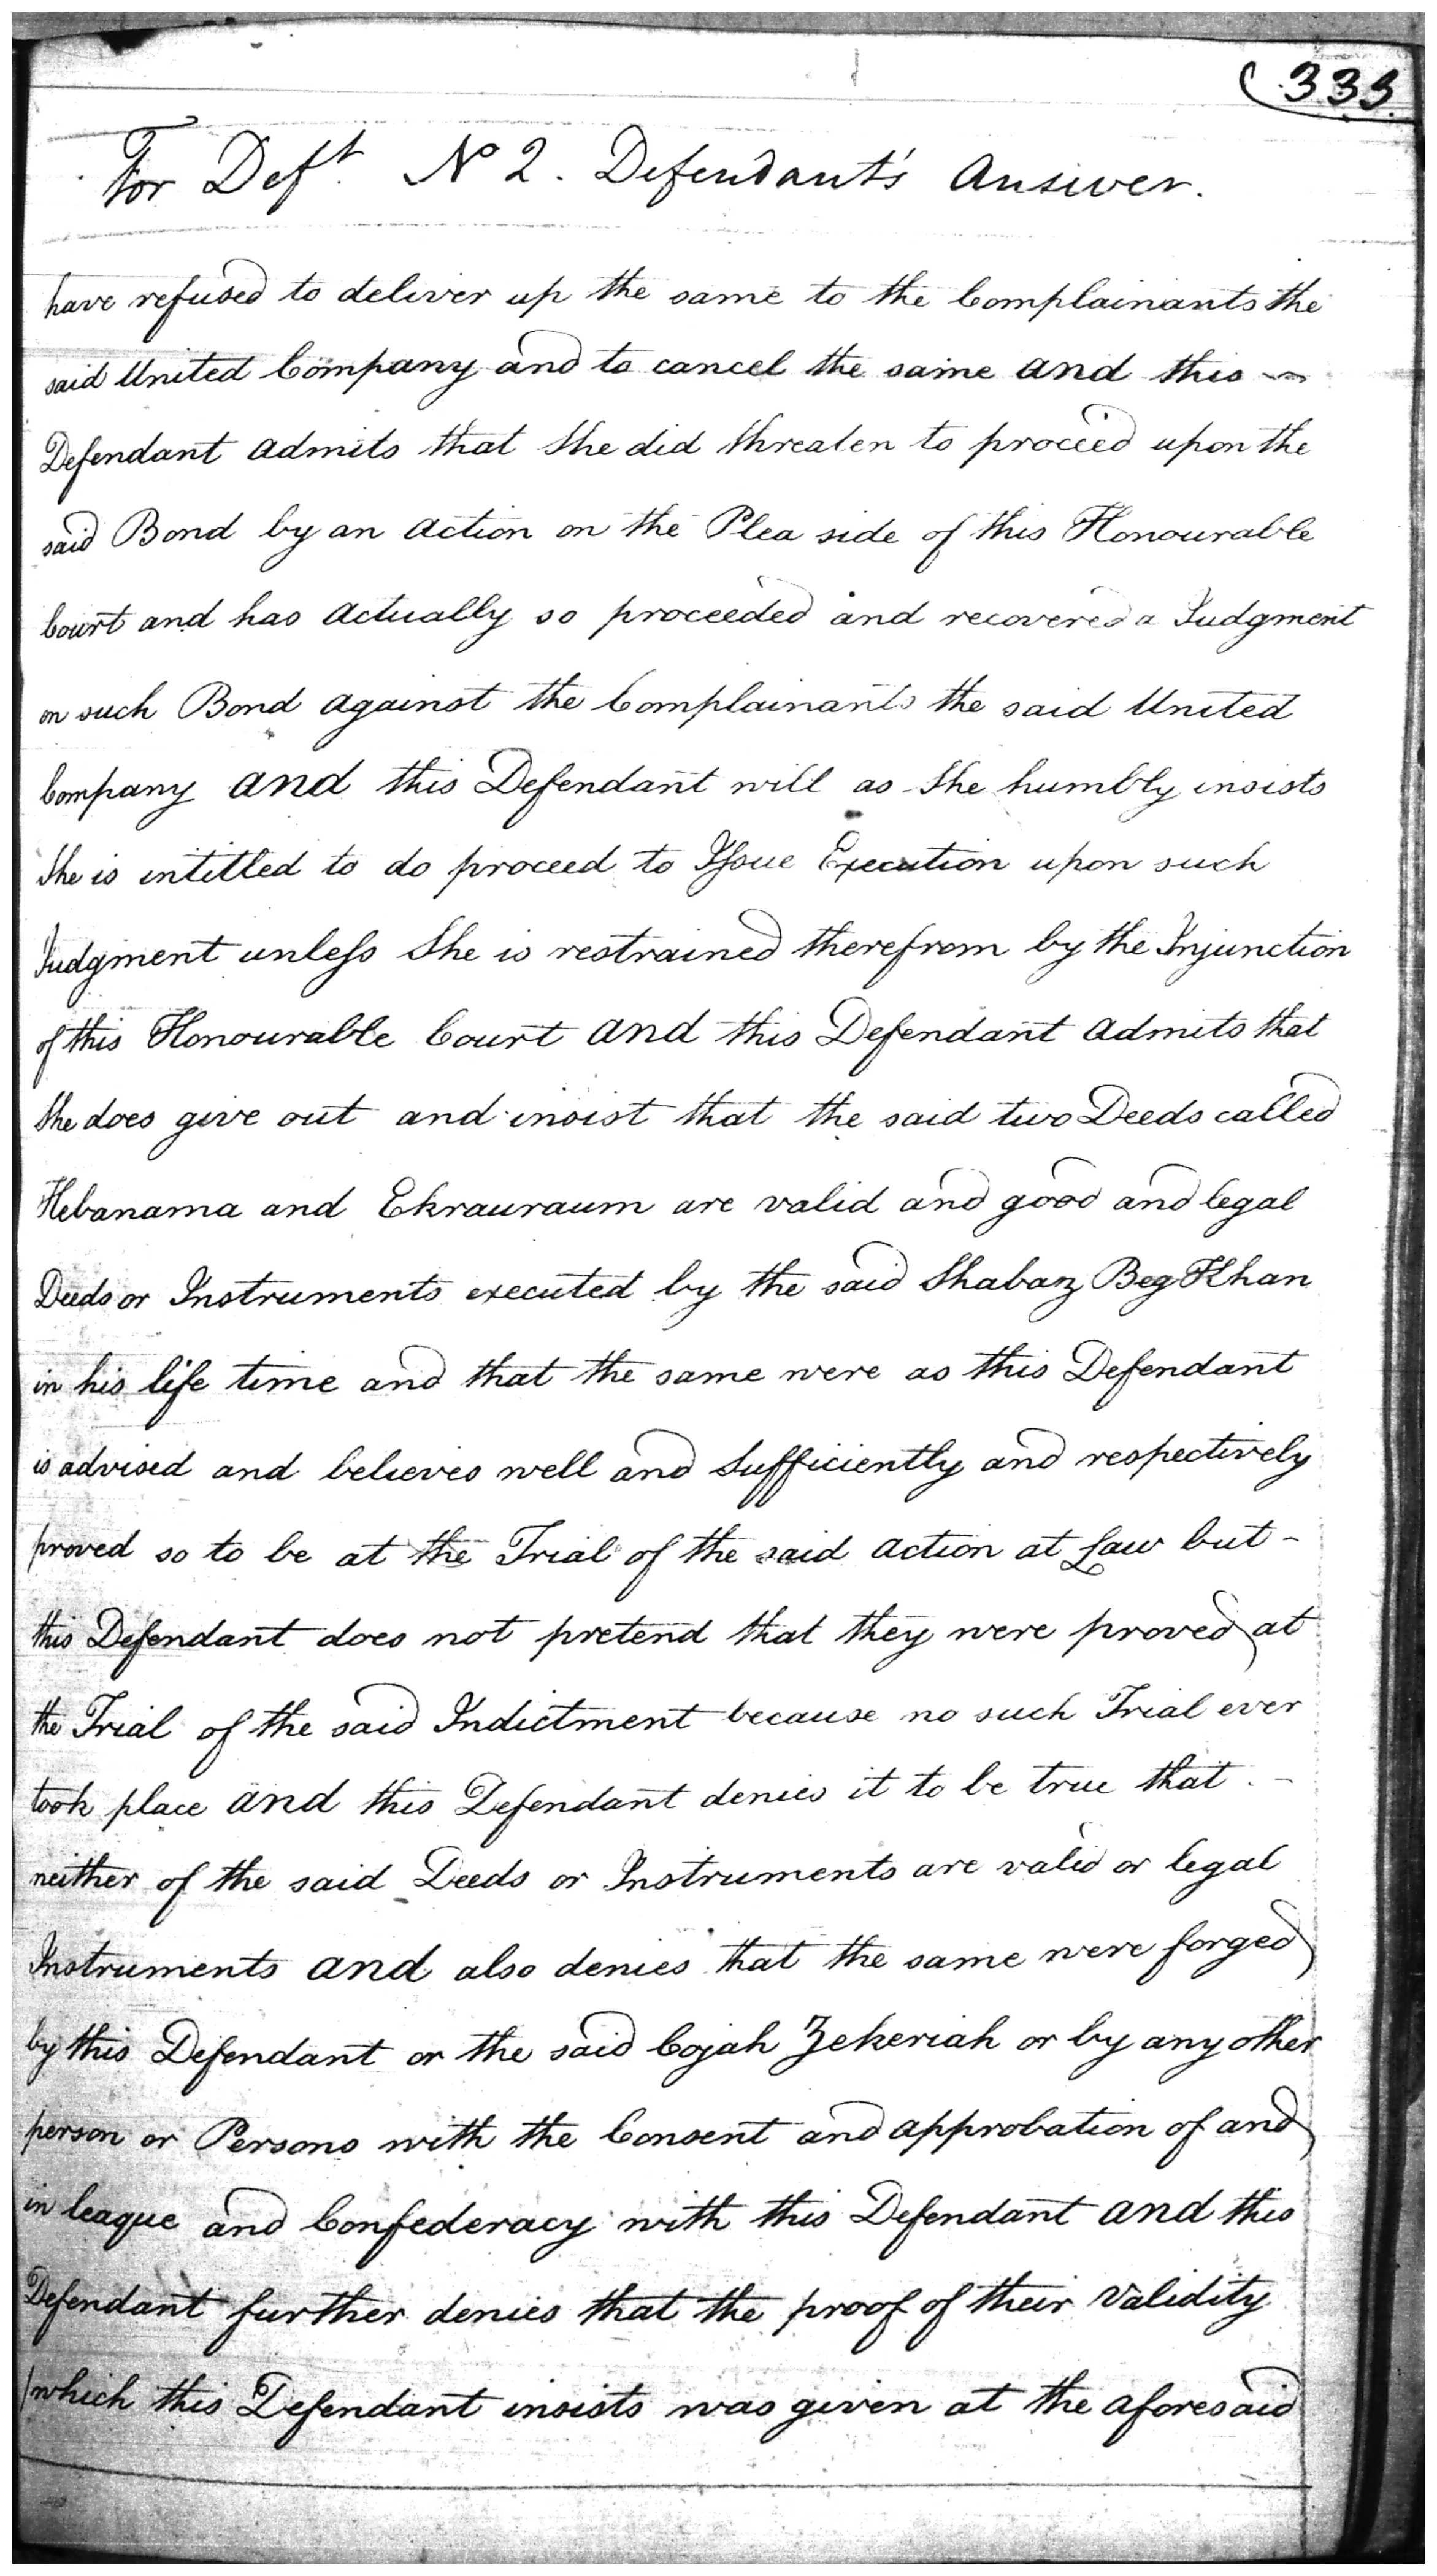 (333
For Deft. No 2. Defendant's Answer.
have refused to deliver up the same to the Complainants the
said United Company and to cancel the same and this
Defendant admits that She did threaten to proceed upon the
said Bond by an action on the Plea side of this Honourable
Court and has actually so proceeded and recovered a Judgment
on such Bond against the Complainants the said United
Company and this Defendant will as She humbly insists
She is intitled to do proceed to Issue Execution upon such
Judgment unless She is restrained therefrom by the Injunction
of this Honourable Court and this Defendant admits that
She does give out and insist that the said two Deeds called
Hebanama and Ekrauraum are valid and good and legal
Deeds or Instruments executed by the said Shabaz Beg Khan
in his life time and that the same were as this Defendant
is advised and believes well and Sufficiently and respectively
proved so to be at the Trial of the said action at Law but -
this Defendant does not pretend that they were proved at
the Trial of the said Indictment because no such Trial ever
took place and this Defendant denies it to be true that -
neither of the said Deeds or Instruments are valid or legal
Instruments and also denies that the same were forged
by this Defendant or the said Cojah Zekeriah or by any other
person or Persons with the Consent and approbation of and
in league and Confederacy with this Defendant and this
Defendant further denies that the proof of their validity
(which this Defendant insists was given at the aforesaid